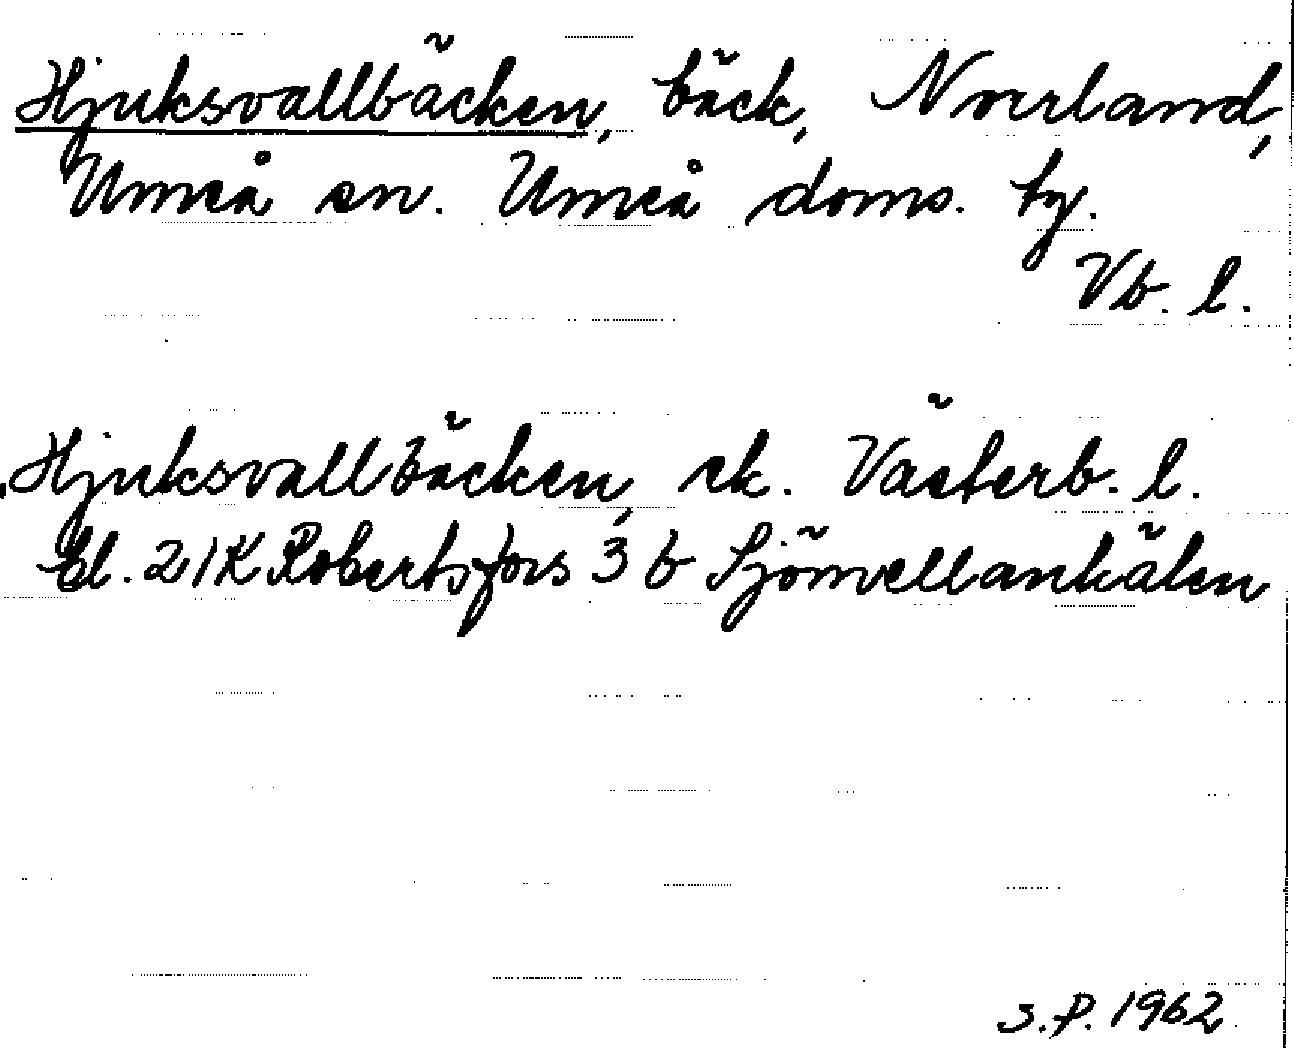 Hjuksvallbäcken, bäck, Norrland,
Umeå sn. Umeå doms. tg.
Vb. l.
Hjuksvallbäcken, ek. Västerb. l.
bl. 21K Robertsfors 3 b Sjömellankälen
S.P. 1962